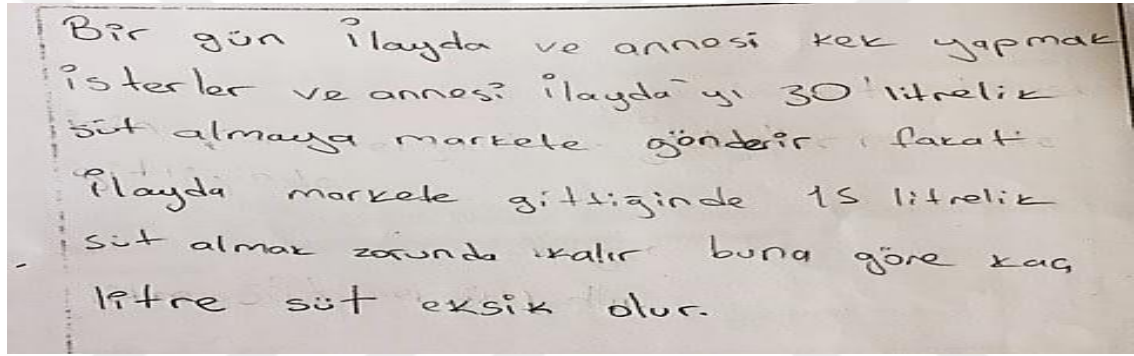 Bir gün İlayda ve annesi kek yapmak
isterler ve annesi İlayda'yı 30 litrelik
süt almaya markete gönderir. fakat
İlayda markete gittiğinde 15 litrelik
süt almak zorunda kalır buna göre kaç
litre süt eksik olur.